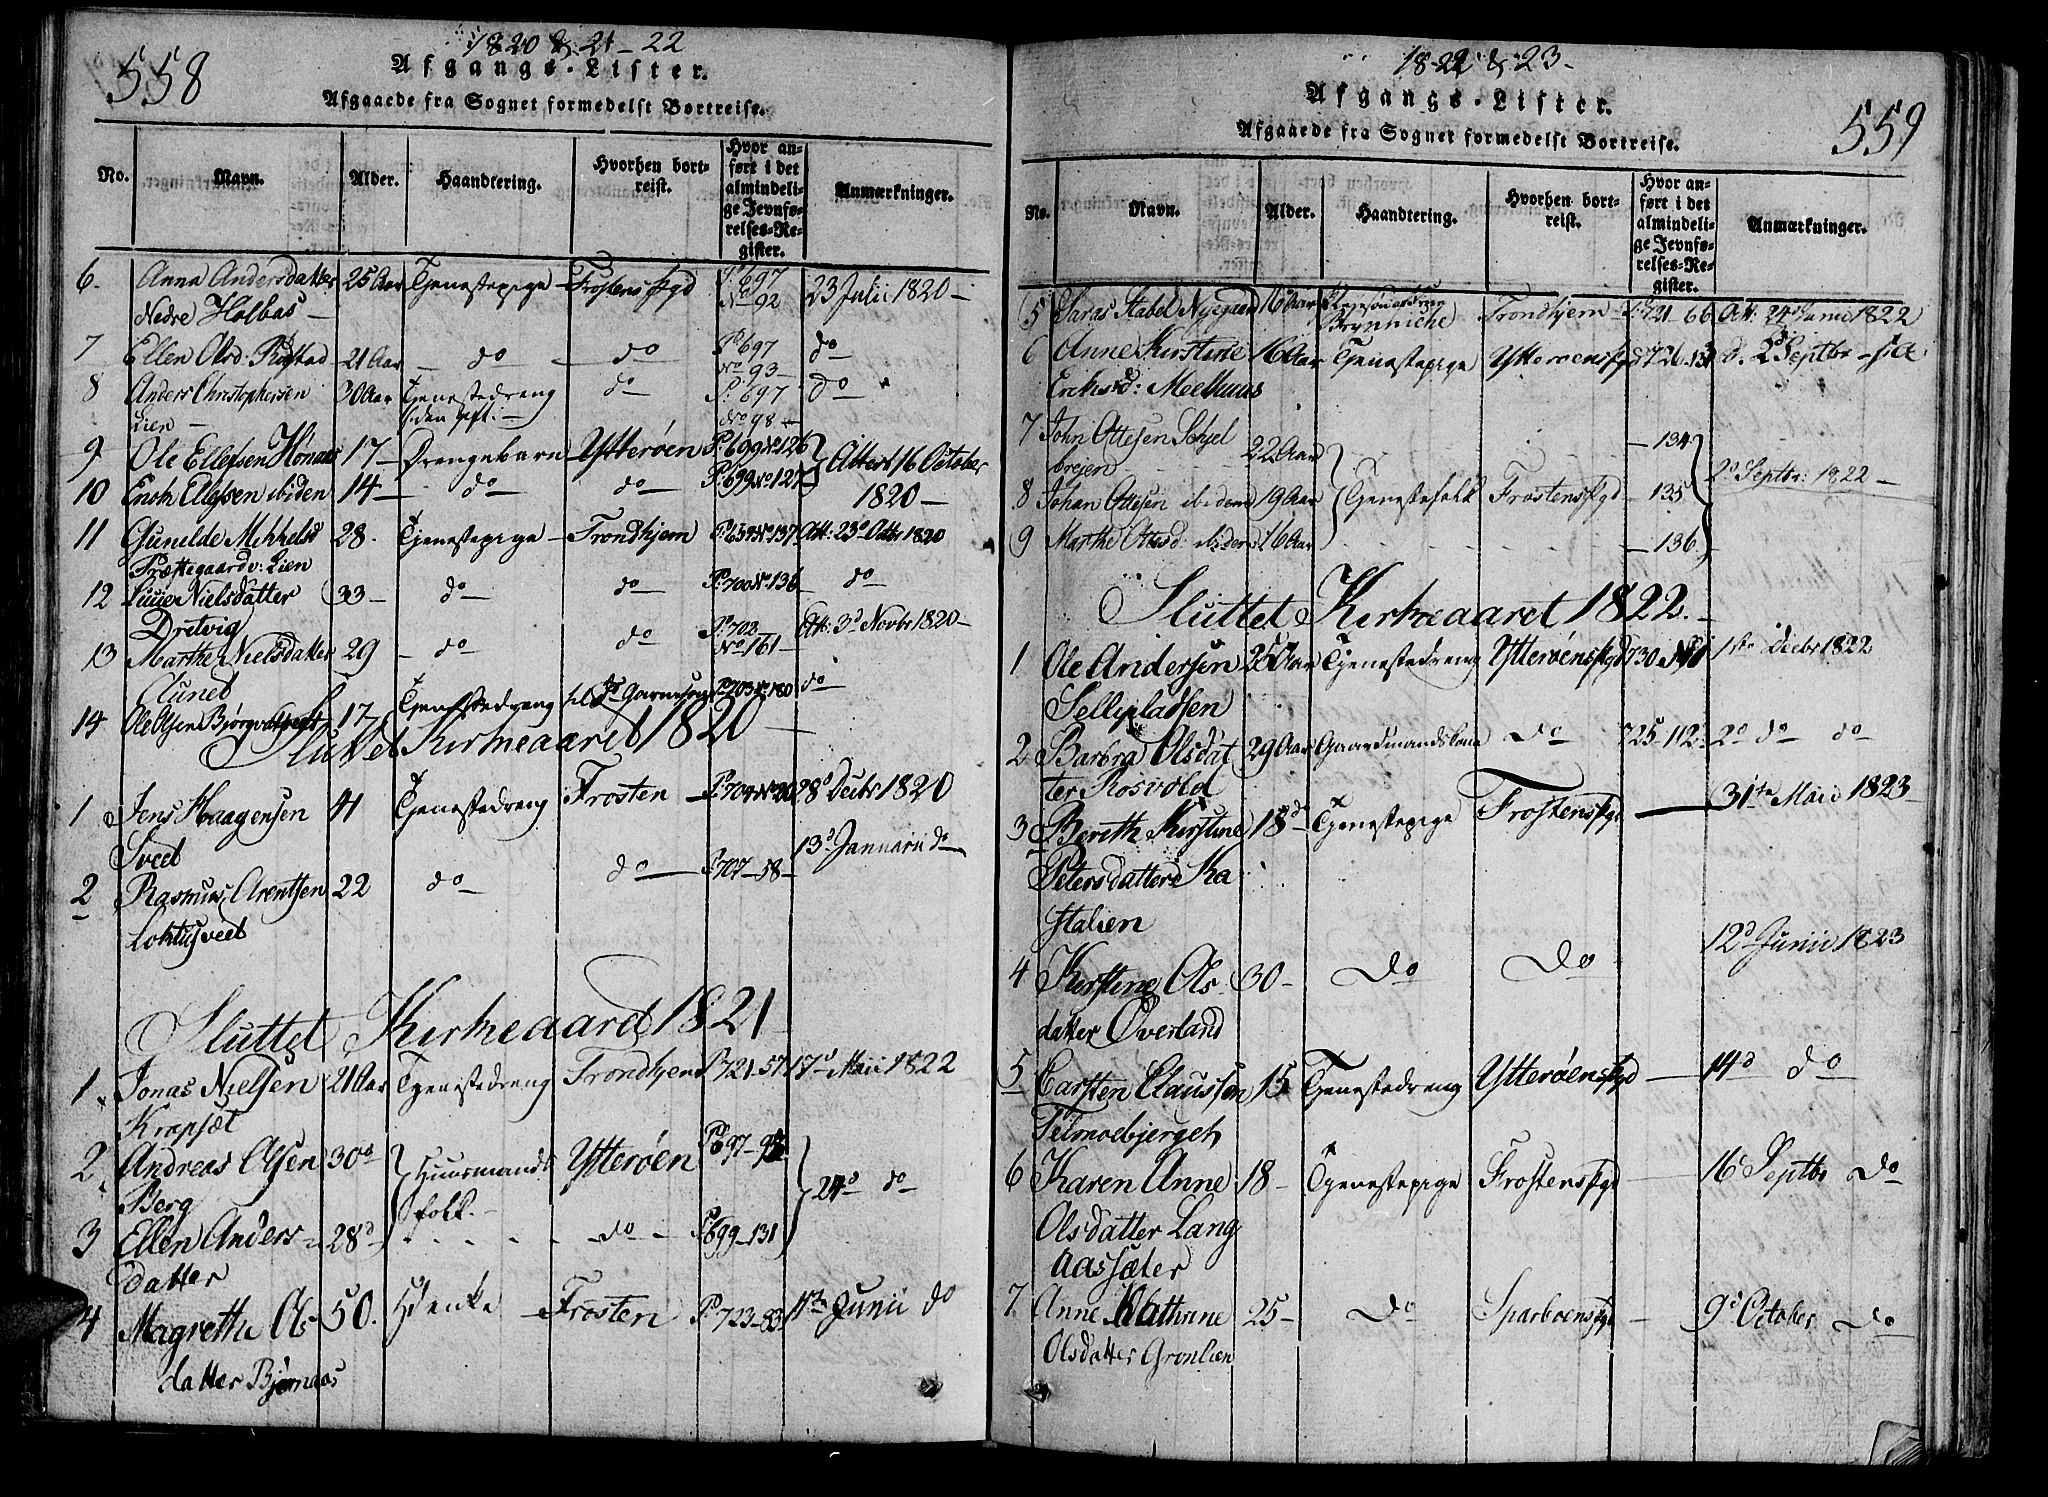 558
1820 & 21-22
Afgangs-Lister.
Afgaaede fra Sognet formedelst Bortreise.
No. Navn. Alder. Haandtering. Hvorhen bortreist. Hvor anført i det almindelige Jevnførelses-Register. Anmærkninger.
6. Anna Andersdatter 25 Aar Tjenestepige Frostens Pgd P: 697 No 92 23 Julii 1820
Nedre Holbas
7 Ellen Olsd: 21 Aar do do P: 697 No 93 do
8 Anders Christophersen 30 Aar Tjenestedreng do P: 697 No 98 do
Lien
9 Ole Ellefsen 17 Drengebarn Ytterøen P: 699 No 126 Attest 16 October
10 Ellefsen ibiden 14 do do P: 699 No 127 1820
11 Gunilde Mikkelsd 28. Tjenestepige Trondhjem 137 Att: 23d Octbr 1820
Lien
12 Nielsdatter 33 do do P: 700 No 136 do
Dretvig
13 Marthe Nielsdatter 29 do do P: 702 No 161 Att: 3d Novbr 1820
14 Ole Olsen 17 Tjenestedreng P: 703 No 180 do
Sluttet Kirkeaaret 1820
1 Jens Haagensen 41 Tjenestedreng Frosten P: 704 28d Decbr 1820
Sveet
2 Rasmus Arentsen 22 do do P: 707-58 13d Januarii do
Sluttet Kirkeaaret 1821
1. Jonas Nielsen 21 Aar Tjenestedreng Trondhjem P 721-57 17d Maii 1822
Kropsæt
2. Andreas Olsen 30d Huusmands Ytterøen P 697 24d do
Berg folk
3 Ellen Anders 28d do P 699-131
datter
4 Magrethe Ols 50. Enke Frosten P 723-83 11te Junii do
datter Bjørnaas
559
1822 & 23
Afgangs-Lister.
Afgaaede fra Sognet formedelst Bortreise.
No. Navn. Alder. Haandtering. Hvorhen bortreist. Hvor anført i det almindelige Jevnførelses-Register. Anmærkninger.
5 Saras Stabel Nygaard 16 Aar Trondhjem P: 721-66 Att: 24 Junii 1822
6 Anne Kirstine 16 Aar Tjenestepige Ytterøens Pgd 726 2 Septbr
Eriksd: Meelhuus
7 John Ottesen 22 Aar 134
8 Johan Ottesen ibidem 19 Aar Tjenestefolk Frostens Pgd 135 2d Septbr: 1822
9 Marthe Ottesd: ibidem 16 Aar 136
Sluttet Kirkeaaret 1822.
1 Ole Andersen 25 Aar Tjenestedreng Ytterøens Pgd 730 1ste Decbr 1822
Sellypladsen
2 Barbra Olsdat 29 Aar Gaardmandskone do 725-112 2d do do
ter Rosvold
3 Bereth Kirstine 18d Tjenestepige Frostens Pgd 31te Maii 1823
Petersdatter Ka
stalien
4 Kirstine Ols 30 Do Do 12d Junii 1823
datter Overland
5 Carsten Claussen 15 Tjenestedreng Ytterøens Pgd 14d do
Telmoebjerget
6 Karen Anne 18 Tjenestepige Frostens Pgd 16 Septbr Do
Olsdatter Lang
aassæter
7. Anne Kathrine 25 Do Sparboens Pgd 9d October Do
Olsdatter Grønlien